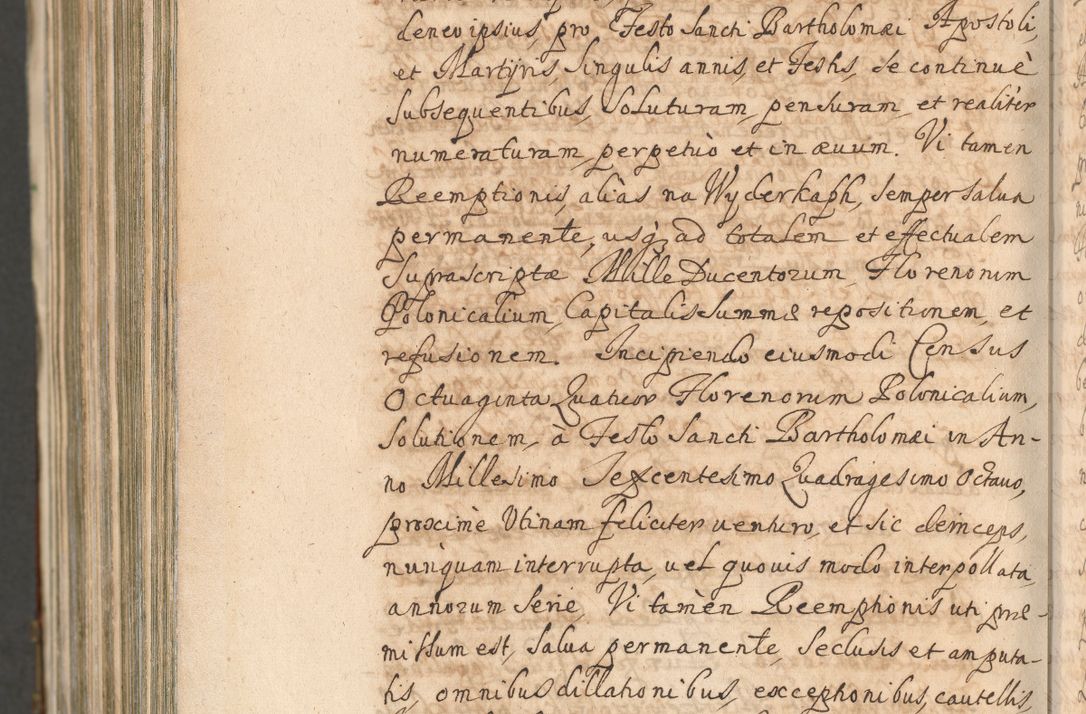 deneo ipsius, pro Festo Sancti Bartholomæi Apostoli,
et Martÿris, Singulis annis, et Festis, se continuè
Subsequentibus, Soluturam, pensuram, et realitèr
numeraturam, perpetuò et in æuum. Vi tamen
Reemptionis, aliàs na Wyderkaph, semper salua
permanente, usq; ad totalem et effectualem
Suprascriptæ Mille Ducentorum Florenorum
Polonicalium, Capitalis Summæ repositionem, et
refusionem. Incipiendo eiusmodi Census
Octuaginta Quatuor Florenorum Polonicalium,
Solutionem, à Festo Sancti Bartholomæi in An-
no Millesimo Sexcentesimo Quadragesimo Octauo,
proximè Utinam feliciter uenturo, et sic deinceps,
nunquam interrupta, uel quouis modo interpollata,
annorum Serie, Vi tamèn Reemptionis uti præ-
missum est, Salua permanente, Seclusis et amputa-
tis, omnibus dillationibus, exceptionibus, cautellis,